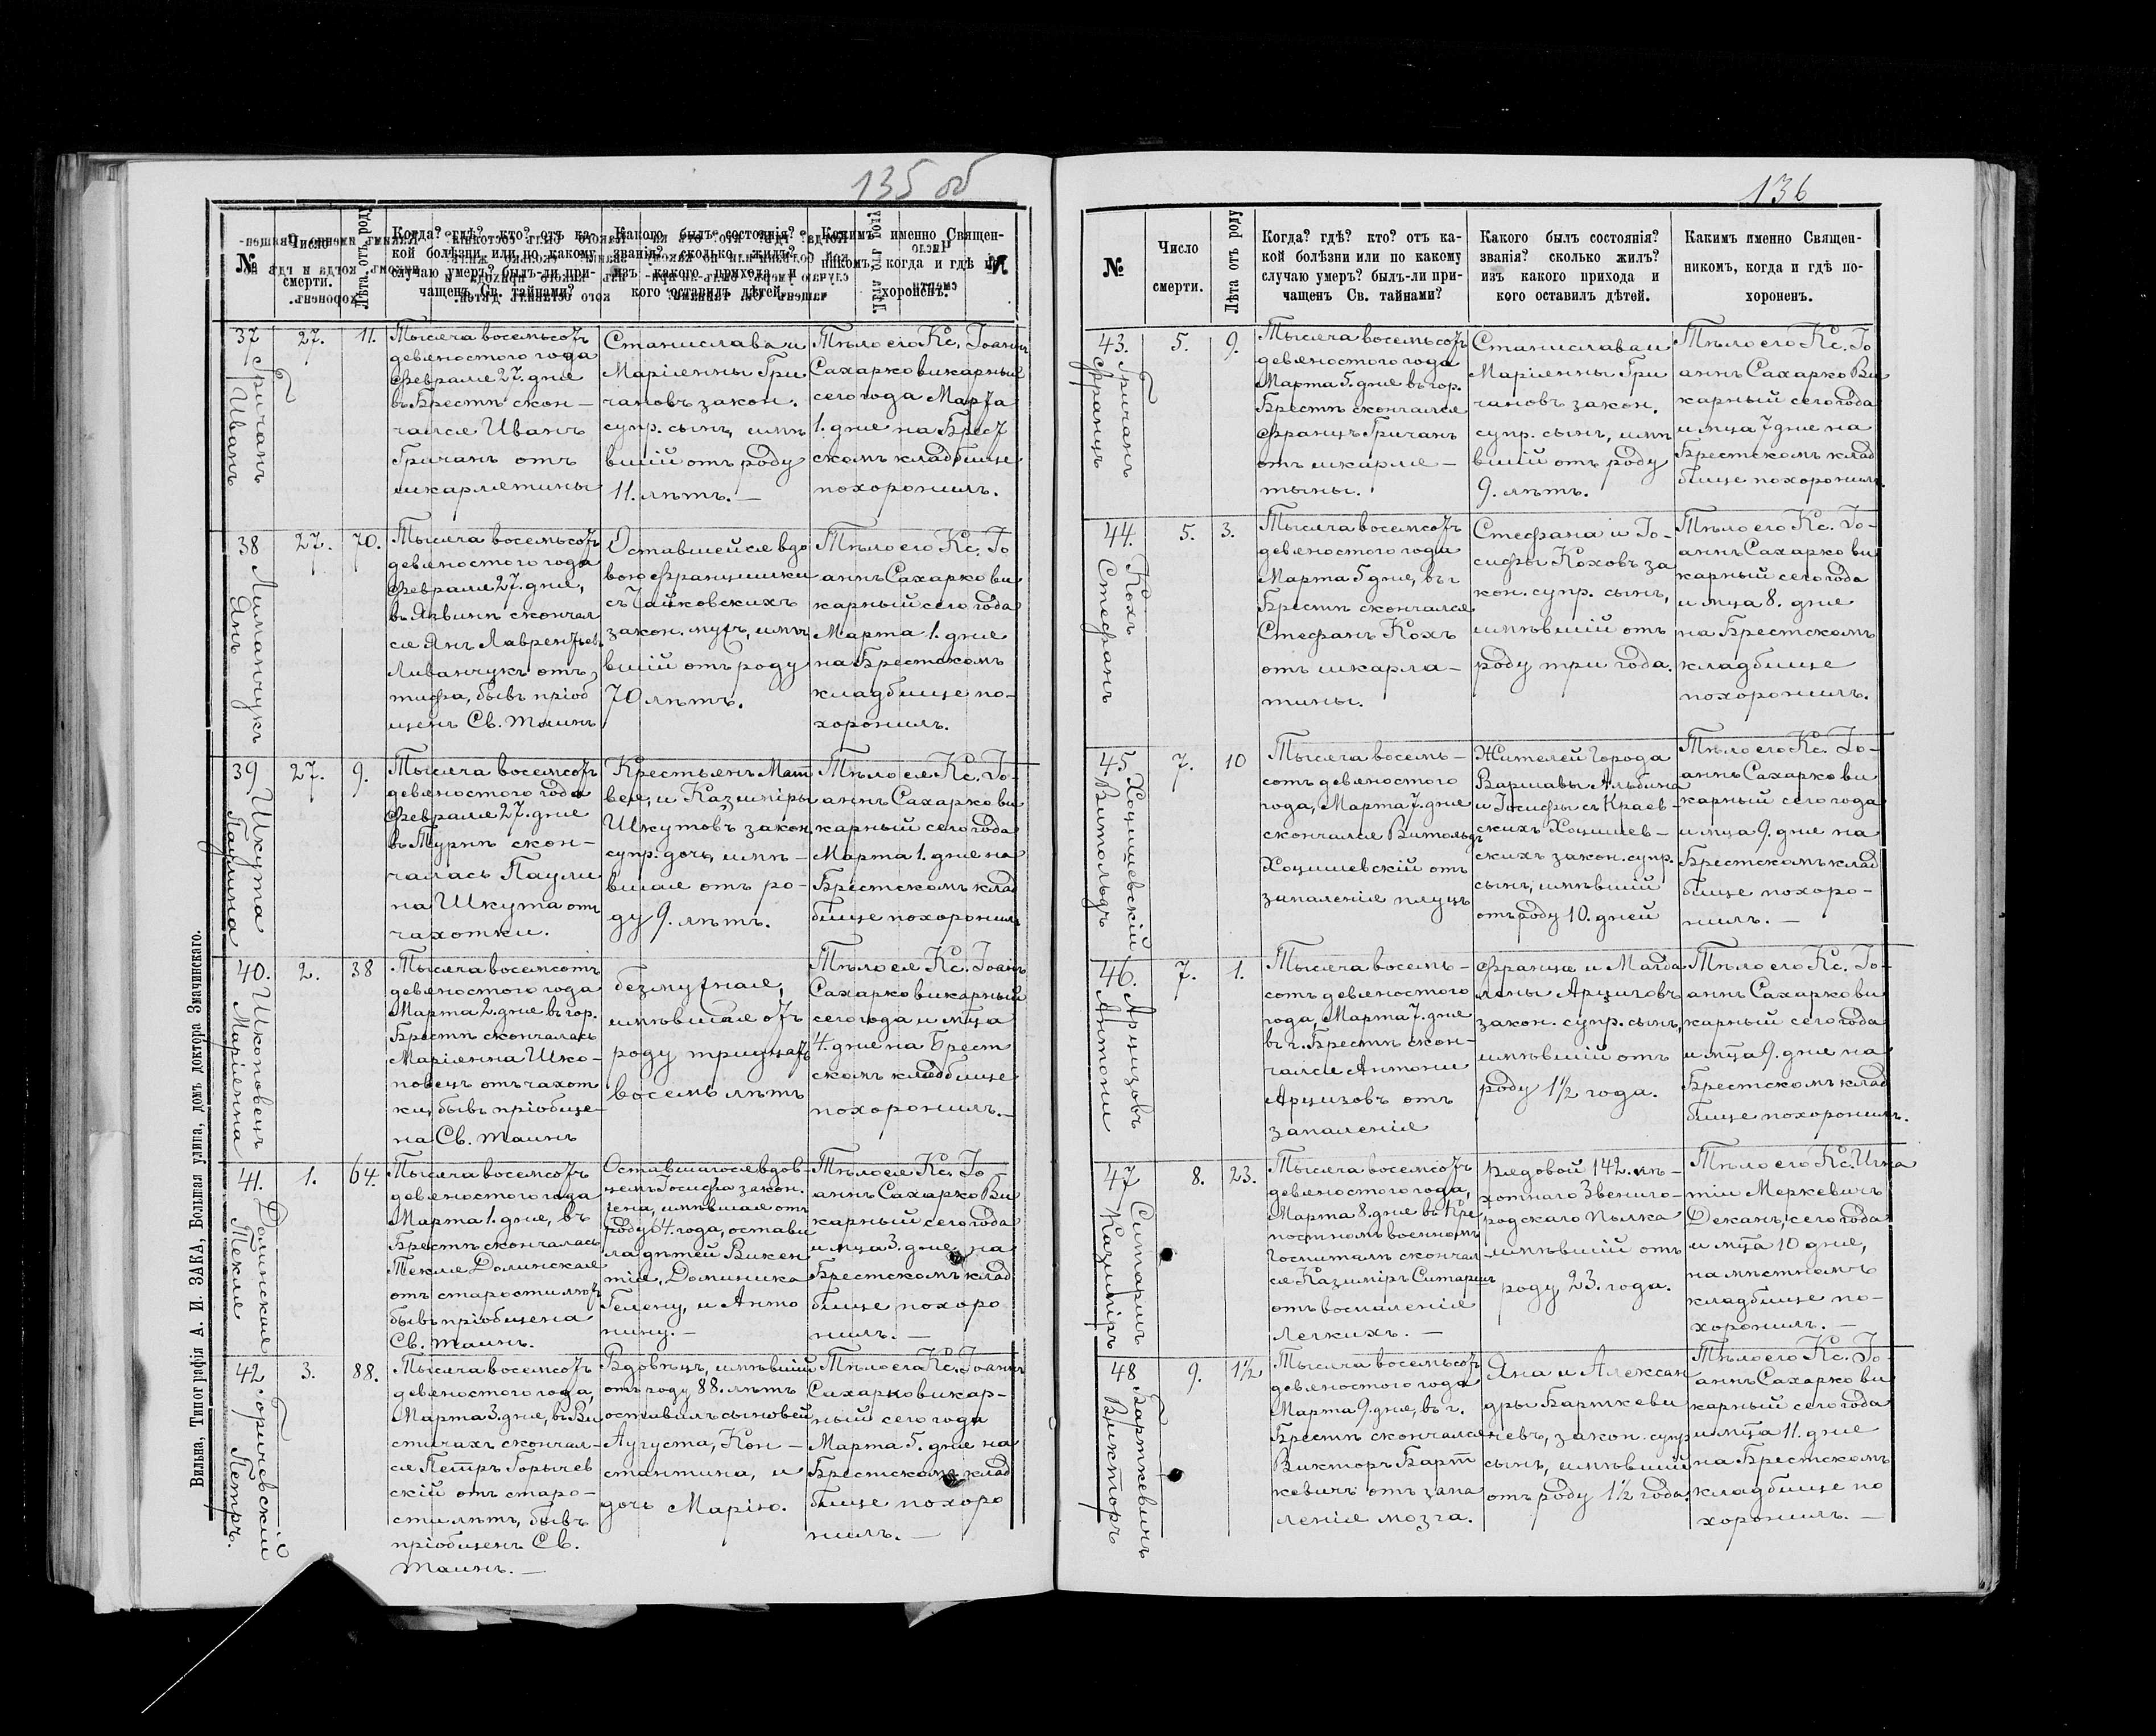 135 об
№
Число
смерти.
Лѣта отъ роду
Когда? гдѣ? кто? отъ ка-
кой болѣзни или по какому
случаю умеръ? былъ-ли при-
чащенъ Св. тайнами?
Какого былъ состоянія?
званія? сколько жилъ?
изъ какого прихода и
кого оставилъ дѣтей.
Какимъ именно Священ-
никомъ, когда и гдѣ по-
хороненъ.
37
Гричанъ
Иванъ
27.
11.
Тысяча восемьсотъ
девяностого года
Февраля 27. дня
въ Брестѣ скон-
чался Иванъ
Гричанъ отъ
шкарлятины
Станислава и
Маріянны Гри
чановъ закон.
супр. сынъ, имѣ
вшій отъ роду
11. лѣтъ. —
Тѣло его Кс. Іоаннъ
Сахарко викарный
сего года Марта
1. дня на Брест
скомъ кладбище
похоронилъ.
38
Ливанчукъ
Янъ
27.
70.
Тысяча восемьсотъ
девяностого года
Февраля 27. дня,
въ Явинѣ скончал
ся Янъ Лаврентьев
Ливанчукъ отъ
тифа, бывъ пріоб
щенъ Св. Таинъ
Оставшейся вдо
вою Францишки
съ Чайковскихъ
закон. мужъ, имѣ
вшій отъ роду
70 лѣтъ.
Тѣло его Кс. Іо
аннъ Сахарко ви
карный сего года
Марта 1. дня
на Брестскомъ
кладбище по-
хоронилъ.
39
Шкута
Паулина
27.
9.
Тысяча восемсотъ
девяностого года
Февраля 27. дня
въ Турнѣ скон-
чалась Паули
на Шкута отъ
чахотки.
Крестьянъ Мат
вея, и Казиміры
Шкутовъ закон
супр. дочь, имѣ-
вшая отъ ро-
ду 9. лѣтъ.
Тѣло ея Кс. Іо-
аннъ Сахарко ви
карный сего года
Марта 1. дня на
Брестскомъ клад
бище похоронилъ
40.
Шкоповецъ
Маріянна
2.
38
Тысяча восемсотъ
девяностого года
Марта 2. дня въ гор.
Брестѣ скончалась
Маріянна Шко-
повецъ отъ чахот
ки, бывъ пріобще-
на Св. Таинъ
безмужная,
имѣвшая отъ
роду тридцать
восемь лѣтъ
Тѣло ея Кс. Іоаннъ
Сахарко викарный
сего года и мѣца
4. дня на Брест
скомъ кладбище
похоронилъ. —
41.
Долинская
Текля
1.
64.
Тысяча восемсотъ
девяностого года
Марта 1. дня, въ
Брестѣ скончалась
Текля Долинская
отъ старости лѣтъ
бывъ пріобщена
Св. Таинъ.
Оставшагося вдов-
цемъ Іосифа закон.
жена, имѣвшая отъ
роду 64. года, остави
ла дѣтей Викен
тія, Доминика
Гелену, и Анто
нину. —
Тѣло ея Кс. Іо
аннъ Сахарко Ви
карный сего года
и мца 3. дня, на
Брестскомъ клад
бище похоро
нилъ. —
42
Горычевскій
Петръ.
3.
88.
Тысяча восемсотъ
девяностого года,
Марта 3. дня, въ Ви
стичахъ скончал-
ся Петръ Горычев
скій отъ старо-
сти лѣтъ, бывъ
пріобщенъ Св.
Таинъ. —
Вдовецъ, имѣвшій
отъ роду 88. лѣтъ
оставилъ сыновей
Аугуста, Кон-
стантина, и
дочь Марію.
Тѣло его Кс. Іоаннъ
Сахарко викар-
ный сего года
Марта 5. дня на
Брестскомъ клад
бище похоро
нилъ. —
Вильна, Типографія А. И. ЗАКА, Большая улица, домъ доктора Змачинскаго.
136
№
Число
смерти.
Лѣта отъ роду
Когда? гдѣ? кто? отъ ка-
кой болѣзни или по какому
случаю умеръ? былъ-ли при-
чащенъ Св. тайнами?
Какого былъ состоянія?
званія? сколько жилъ?
изъ какого прихода и
кого оставилъ дѣтей.
Какимъ именно Священ-
никомъ, когда и гдѣ по-
хороненъ.
43.
Гричанъ
Францъ
5.
9.
Тысяча восемьсотъ
девяностого года
Марта 5. дня въ гор.
Брестѣ скончался
Францъ Гричанъ
отъ шкарля-
тыны.
Станислава и
Маріянны Гри
чановъ закон.
супр. сынъ, имѣ
вшій отъ роду
9. лѣтъ.
Тѣло его Кс. Іо
аннъ Сахарко Ви
карный сего года
и мца 7 дня на
Брестскомъ клад
бище похоронилъ.
44.
Кохъ
Стефанъ
5.
3.
Тысяча восемсотъ
девяностого года
Марта 5 дня, въ г
Брестѣ скончался
Стефанъ Кохъ
отъ шкарла-
тины.
Стефана и Іо-
сифы Коховъ за
кон. супр. сынъ,
имѣвшій отъ
роду три года.
Тѣло его Кс. Іо-
аннъ Сахарко ви
карный сего года
и мца 8. дня
на Брестскомъ
кладбище
похоронилъ.
45.
Хоцишевскій
Витольдъ
7.
10
Тысяча восемь-
сотъ девяностого
года, Марта 7. дня
скончался Витольдъ
Хоцишевскій отъ
запаленія плуцъ
Жителей Города
Варшавы Альбина
и Іосифы съ Краев-
скихъ Хоцишев-
скихъ закон. супр.
сынъ, имѣвшій
отъ роду 10. дней
Тѣло его Кс. Іо-
аннъ Сахарко ви
карный сего года
и мца 9. дня на
Брестскомъ клад
бище похоро-
нилъ. —
46.
Арцизовъ
Антони
7.
1.
Тысяча восемь-
сотъ девяностого
года, Марта 7. дня
въ г. Брестѣ скон-
чался Антони
Арцизовъ отъ
запаленія
Франца и Магда
лены Арцизовъ
закон. супр. сынъ,
имѣвшій отъ
роду 1½ года.
Тѣло его Кс. Іо-
аннъ Сахарко ви
карный сего года
и мца 9. дня на
Брестскомъ клад
бище похоронилъ.
47
Ситаришъ
Казиміръ
8.
23.
Тысяча восемсотъ
девяностого года,
Марта 8. дня въ Крѣ
постномъ военномъ
госпиталѣ скончал-
ся Казиміръ Ситаришъ
отъ воспаленія
Легкихъ. —
Рядовой 142. пѣ-
хотнаго Звениго-
родскаго Полка
имѣвшій отъ
роду 23. года.
Тѣло его Кс. Игна
тій Меркевичъ
Деканъ, сего года
и мца 10 дня,
на мѣстномъ
кладбище по-
хоронилъ. —
48
Барткевичъ
Викторъ
9.
1½
Тысяча восемьсотъ
девяностого года
Марта 9. дня, въ г.
Брестѣ скончался
Викторъ Барт
кевичъ отъ запа
ленія мозга.
Яна и Алексан
дры Барткеви
чевъ, закон. супр
сынъ, имѣвшій
отъ роду 1½ года.
Тѣло его Кс. Іо-
аннъ Сахарко ви
карный сего года
и мца 11. дня
на Брестскомъ
кладбище по
хоронилъ. —